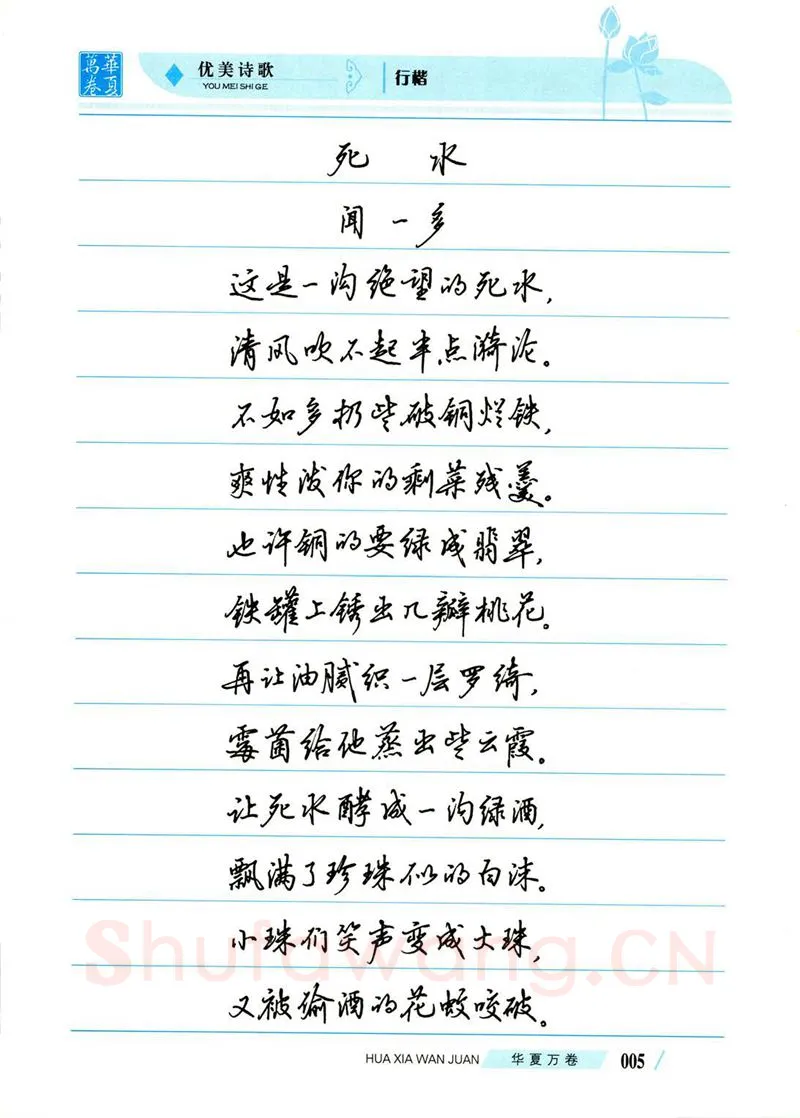 華夏萬卷
优美诗歌
YOU MEI SHI GE
行楷
死水
闻一多
这是一沟绝望的死水，
清风吹不起半点漪沦。
不如多扔些破铜烂铁，
爽性泼你的剩菜残羹。
也许铜的要绿成翡翠，
铁罐上锈出几瓣桃花。
再让油腻织一层罗绮，
霉菌给他蒸出些云霞。
让死水酵成一沟绿酒，
飘满了珍珠似的白沫。
小珠们笑声变成大珠，
又被偷酒的花蚊咬破。
Shufawang.CN
HUA XIA WAN JUAN
华夏万卷
005